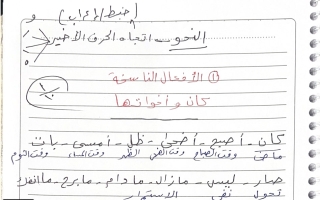 (ضبط/إعراب)
النحو - اتجاه الحرف الأخير
① الأفعال الناسخة
كان وأخواتها
كان - أصبح - أضحى - ظل - أمسى - بات
ماضي وقت الصباح وقت الضحى وقت المساء وقت النوم
صار - ليس - مازال - مادام - مابرح - ماانفك
تحول نفي الاستمرار